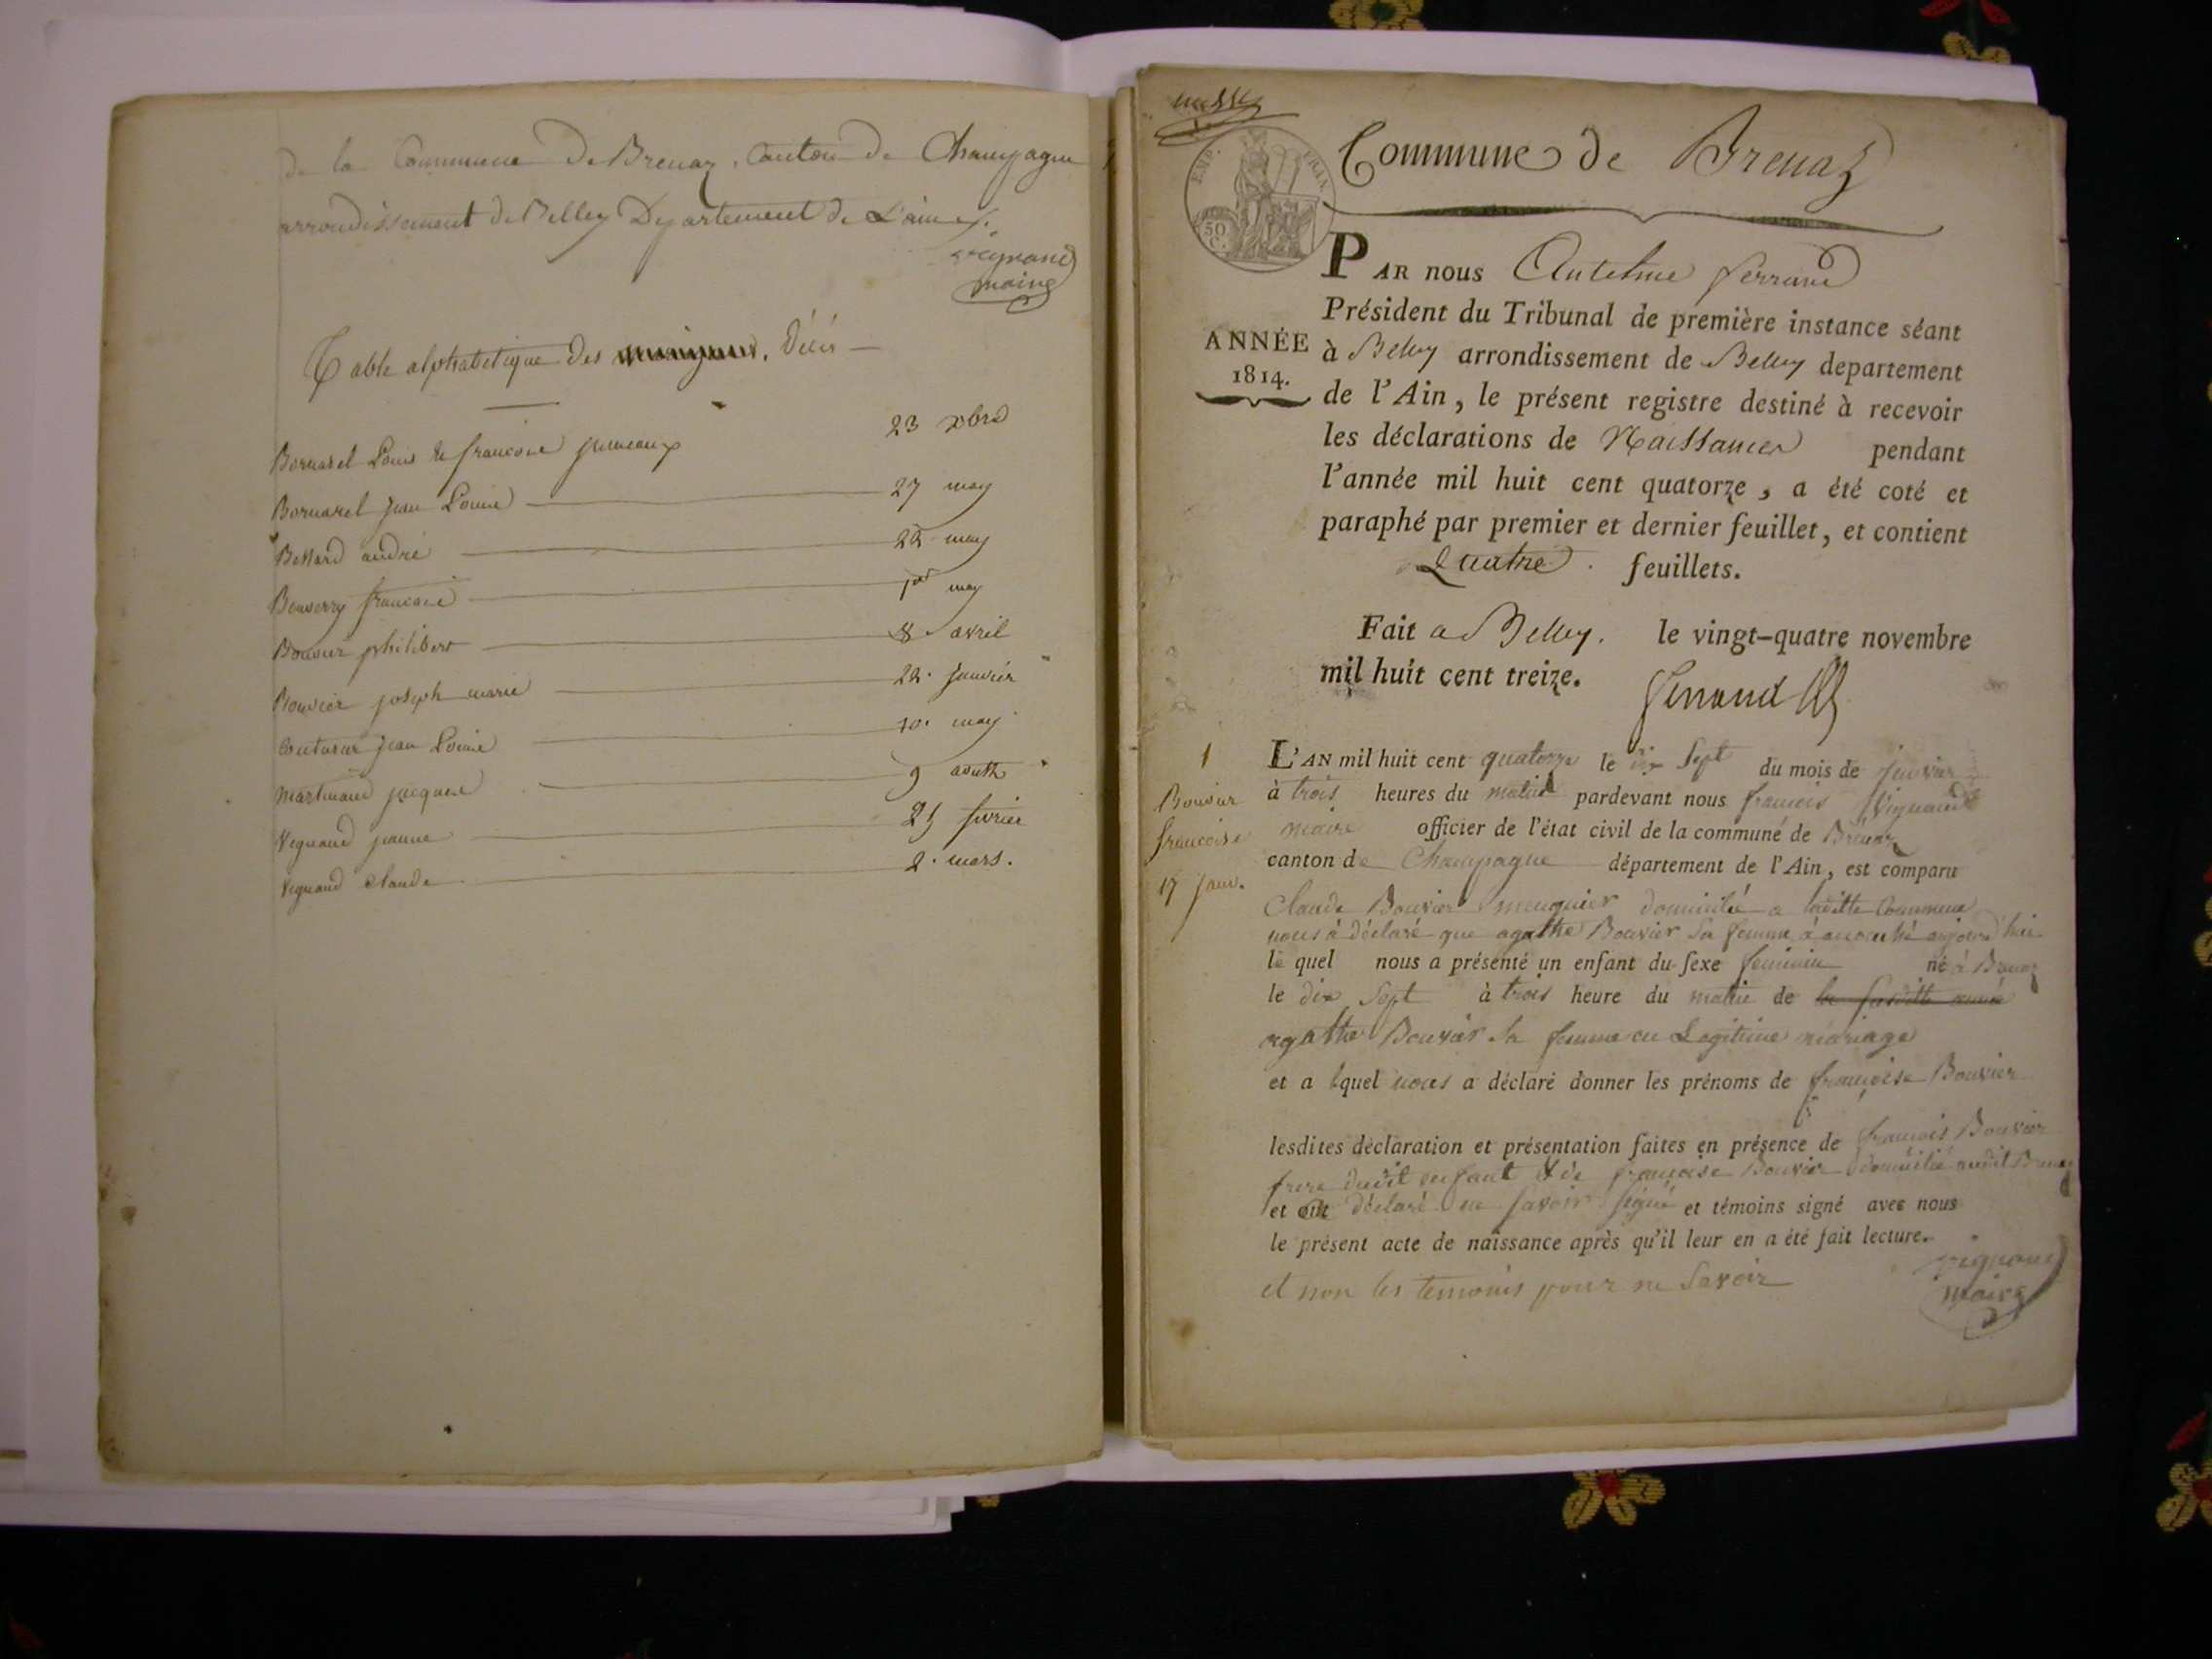 de la Commune De Brenaz, Canton de Champagne
arrondissement de Belley Département de L'ain
vignand
maire
Table alphabetique des mariages, Décés
Bornarel Louis & francoise jumeaux 23 xbre
Bornarel jean Louis 27 may
Bettard andré 22 may
Bouverry francois 1er may
Bouvier philibert 8 avril
Bouvier joseph marie 22. janvier
Couturier jean Louis 10. may
martinand jacques 9 aoust
vignand jeanne 25 fevrier
vignand claude 2. mars.
EMP. FRAN.
50
C.
Commune de Brenaz
PAR nous Antelme ferrand
Président du Tribunal de première instance séant
ANNÉE
1814.
à Belley arrondissement de Belley departement
de l'Ain, le présent registre destiné à recevoir
les déclarations de Naissances pendant
l'année mil huit cent quatorze, a été coté et
paraphé par premier et dernier feuillet, et contient
Quatre. feuillets.
Fait a Belley. le vingt-quatre novembre
mil huit cent treize.
ferrand
1
Bouvier
francoise
17 janv.
L'AN mil huit cent quatorze le dix sept du mois de janvier
à trois heures du matin pardevant nous francois vignand
maire officier de l'état civil de la commune de Brenaz
canton de Champagne département de l'Ain, est comparu
Claude Bouvier meugnier domicilié a laditte Commune
nous à déclaré que agathe Bouvier sa femme à accouché aujourd'hui
le quel nous a présenté un enfant du sexe feminin né à Brenaz
le dix sept à trois heure du matin de la susditte année
agathe Bouvier sa femme en Legitime mariage
et a lquel nous a déclaré donner les prénoms de françoise Bouvier
lesdites déclaration et présentation faites en présence de francois Bouvier
frere dudit enfant & de francoise Bouvier domicilié audit Brenaz
et ont déclaré ne savoir signé et témoins signé avec nous
le présent acte de naissance après qu'il leur en a été fait lecture.
et non les temoins pour ne Savoir
vignand
maire